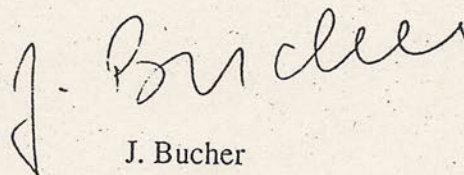 J. Bucher
J. Bucher